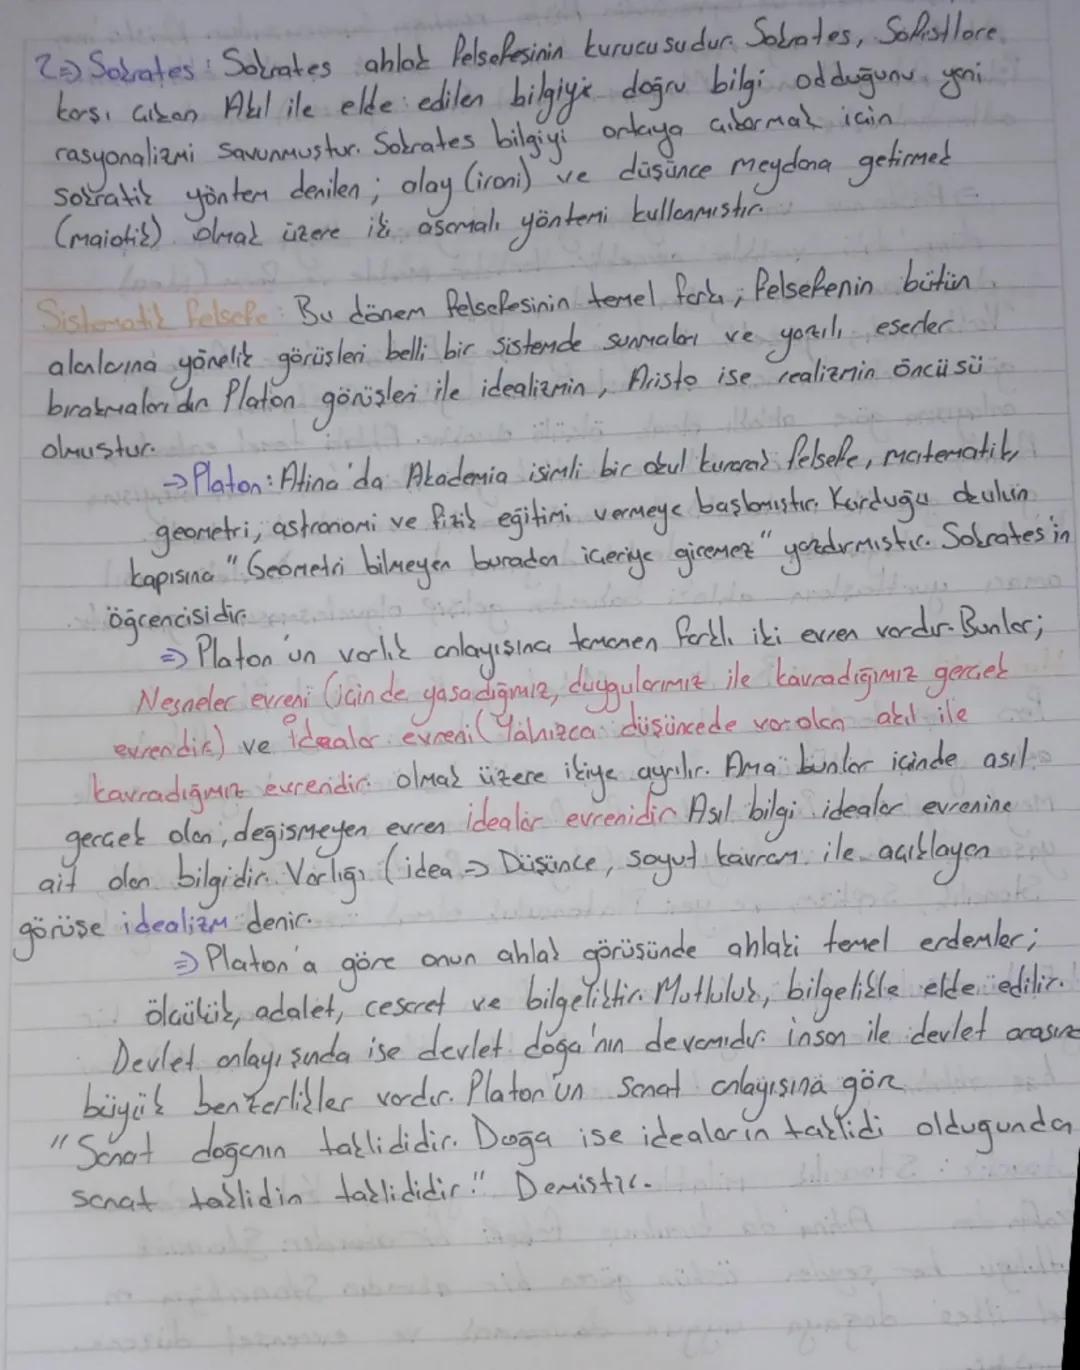 2=> Sokrates: Sokrates ahlak felsefesinin kurucusudur. Sokrates, Sofistlere
karşı çıkan Akıl ile elde edilen bilgiyi doğru bilgi odduğunu yeni
rasyonalizmi savunmustur. Sokrates bilgiyi ortaya çıkarmak için
sokratik yöntem denilen; alay (ironi) ve düşünce meydana getirmek
(maiotik) olmak üzere iki aşamalı yöntemi kullanmıstır.
Sistematik felsefe: Bu dönem felsefesinin temel farkı; felsefenin bütün
alanlarına yönelik görüşleri belli bir sistemde sunmaları ve yazılı eserler
bırakmalarıdır Platon görüşleri ile idealizmin, Aristo ise realizmin öncüsü
olmuştur.
→Platon: Atina'da Akademia isimli bir okul kurarak felsefe, matematik,
geometri, astronomi ve fizik eğitimi vermeye başlamıştır. Kurduğu okulun
kapısına "Geometri bilmeyen buradan içeriye giremez" yazdırmıstır. Sokrates'in
öğrencisidir.
=> Platon'un varlık anlayısına tamamen farklı iki evren vardır. Bunlar;
Nesneler evreni (içinde yasadığımız, duygularımız ile kavradığımız gerçek
evrendir.) ve idealar evreni (Yalnızca düşüncede var olan akıl ile
kavradığımız evrendir. olmak üzere ikiye ayrılır. Ama bunlar içinde asıl
gerçek olan, değismeyen evren idealar evrenidir Asıl bilgi idealar evrenine
ait olan bilgidir. Varlığı (idea => Düşünce, soyut kavram ile açıklayan
görüşe idealizm denir.
=> Platon'a göre onun ahlak görüsünde ahlaki temel erdemler;
ölçülük, adalet, cesaret ve bilgeliktir. Mutluluk, bilgelikle elde edilir.
Devlet anlayışında ise devlet doğa'nın devamıdır. insan ile devlet arasına
büyük benzerlikler vardır. Platon'un sanat anlayısına göre
"Sanat doganın taklididir. Doğa ise idealarin taklidi oldugundan
sanat taklidin taklididir." Demistir.